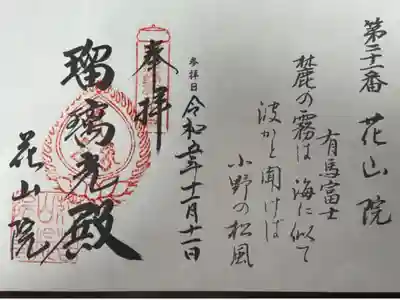 第二十一番 花山院
有馬富士
麓の霧は 海に似て
波かと聞けば
小野の松風
参拝日 令和五年十一月十一日
奉拝
瑠璃光殿
花山院